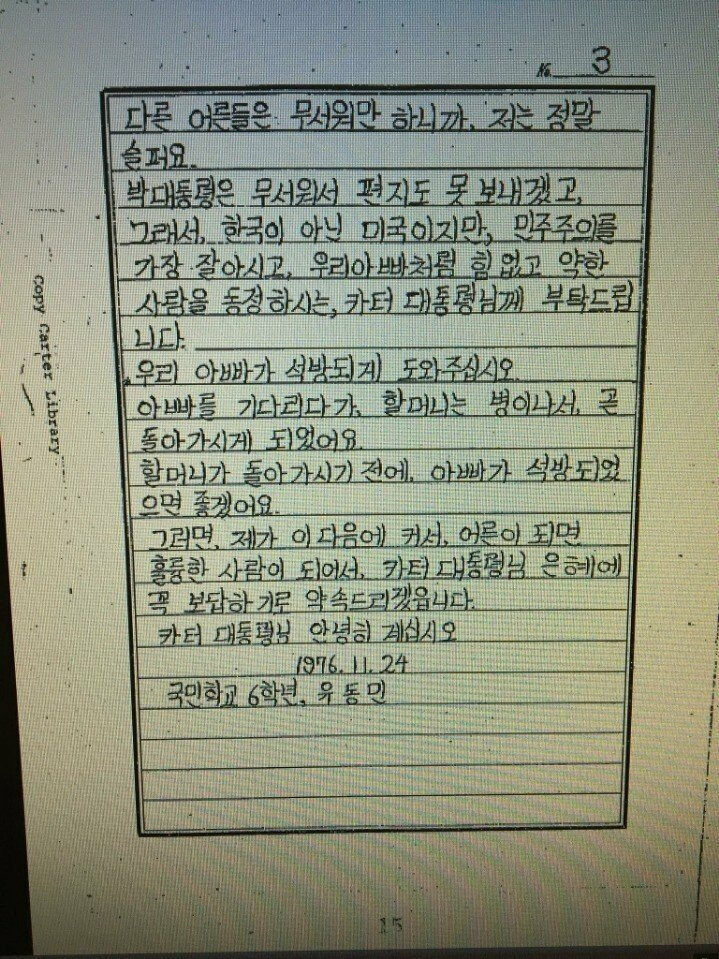 No. 3
다른 어른들은 무서워만 하니까, 저는 정말
슬퍼요.
박대통령은 무서워서 편지도 못 보내겠고,
그래서, 한국이 아닌 미국이지만, 민주주이를
가장 잘아시고, 우리아빠처럼 힘없고 약한
사람을 동정하시는, 카터 대통령님께 부탁드립
니다.
우리 아빠가 석방되게 도와주십시오
아빠를 기다리다가, 할머니는 병이나서, 곧
돌아가시게 되었어요.
할머니가 돌아가시기 전에, 아빠가 석방되었
으면 좋겠어요.
그러면, 제가 이 다음에 커서, 어른이 되면
훌륭한 사람이 되어서, 카터 대통령님 은혜에
꼭 보답하기로 약속드리겠읍니다.
카터 대통령님 안녕히 계십시오
1976. 11. 24
국민학교 6학년, 유동민
Copy Carter Library
15